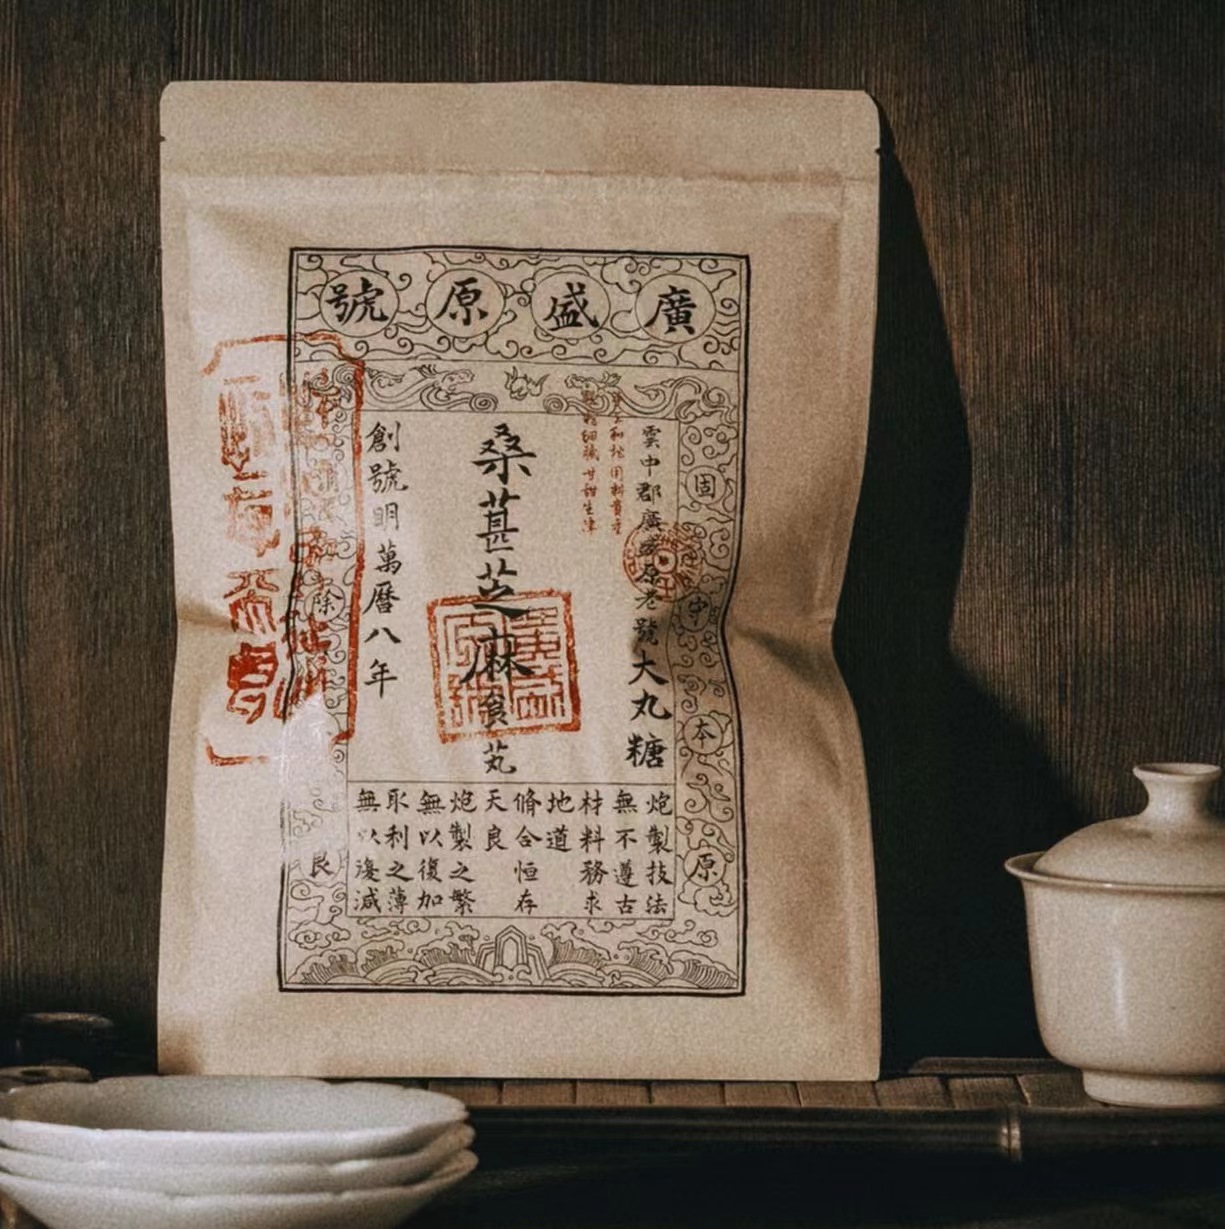 廣盛原號
雲中郡廣盛原老號大丸糖
桑葚芝麻食丸
創號明萬曆八年
炮製技法
無不遵古
材料務求
地道
脩合恒存
天良
炮製之繁
無以復加
取利之薄
無以復減
固
守
本
原
除
良